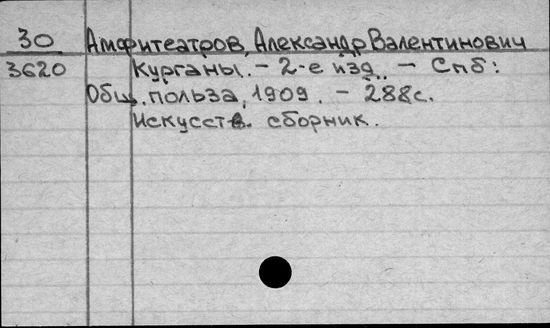 30 Амфитеатров, Александр Валентинович
3620 Курганы. - 2-е изд. - Спб:
Общ. польза, 1909. - 288с.
Искусств. сборник.